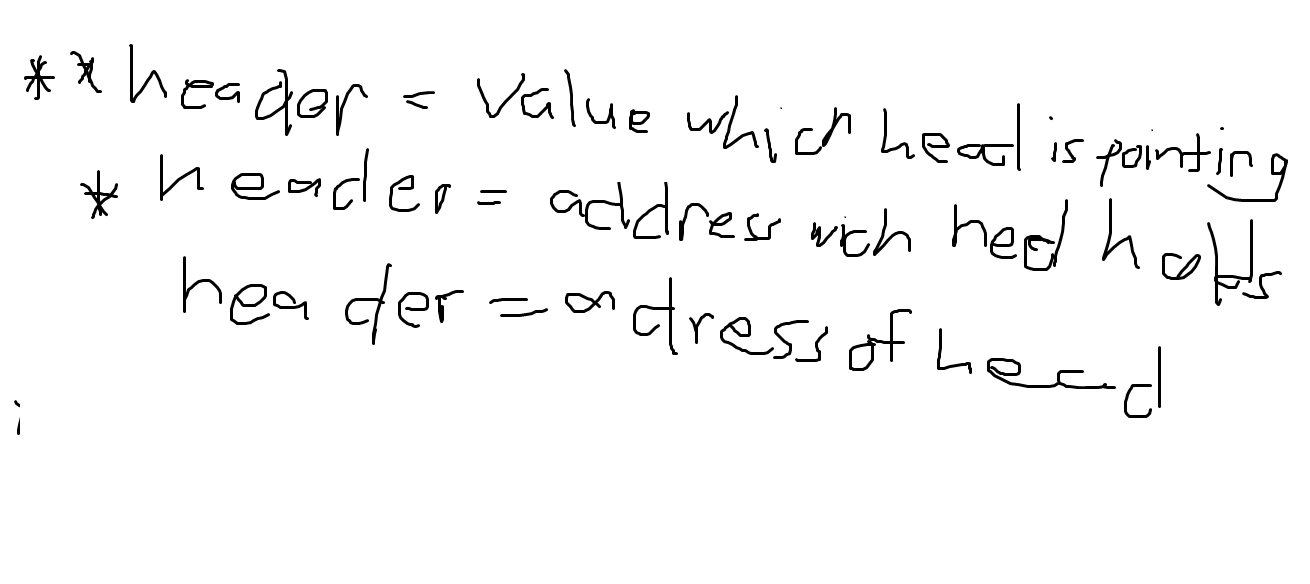 **header = value which head is pointing
*header = address wich hed holds
header = adress of head